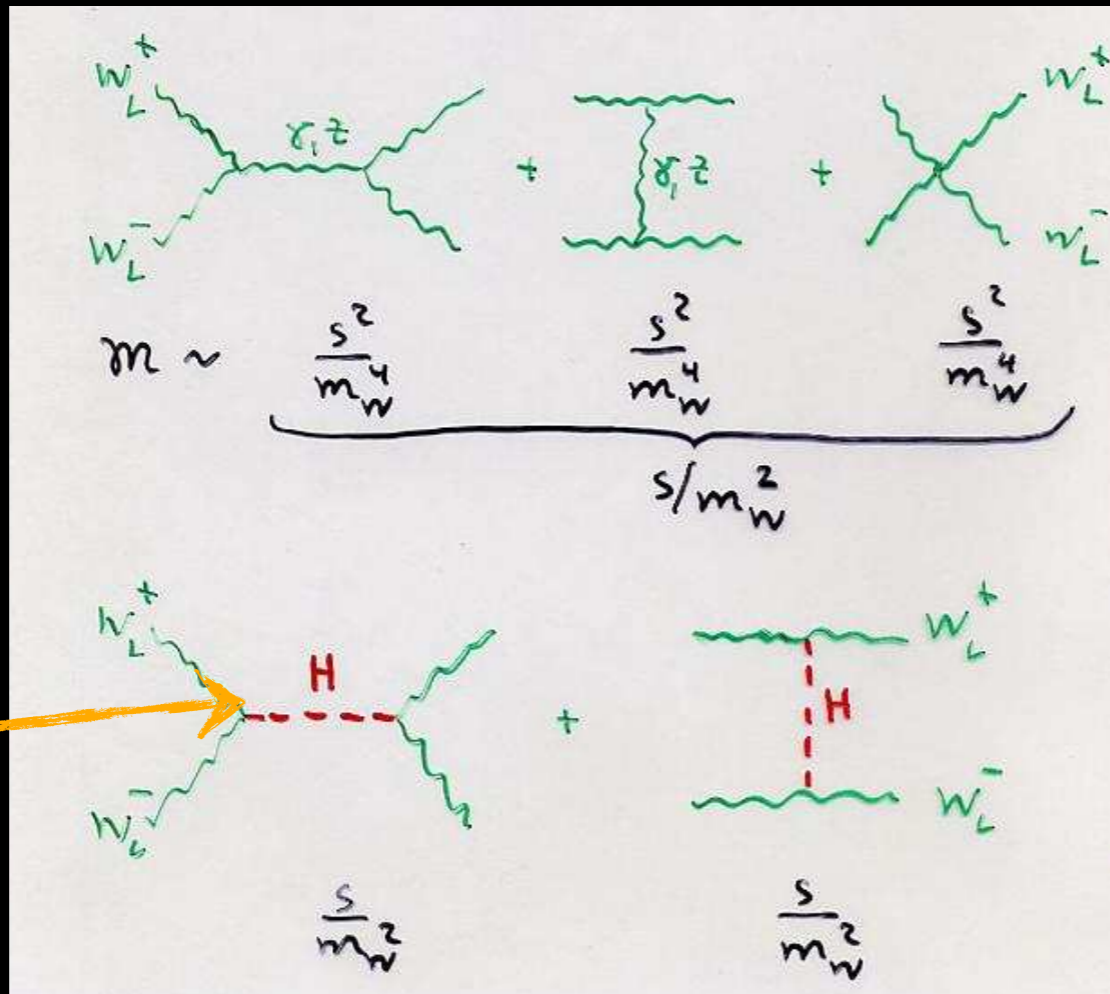 W_L^+ W_L^+
γ, Z + γ, Z +
W_L^- W_L^-
m ~ s²/m_W⁴ s²/m_W⁴ s²/m_W⁴
s/m_W²
W_L^+ W_L^+
H + H
W_L^- W_L^-
s/m_W² s/m_W²